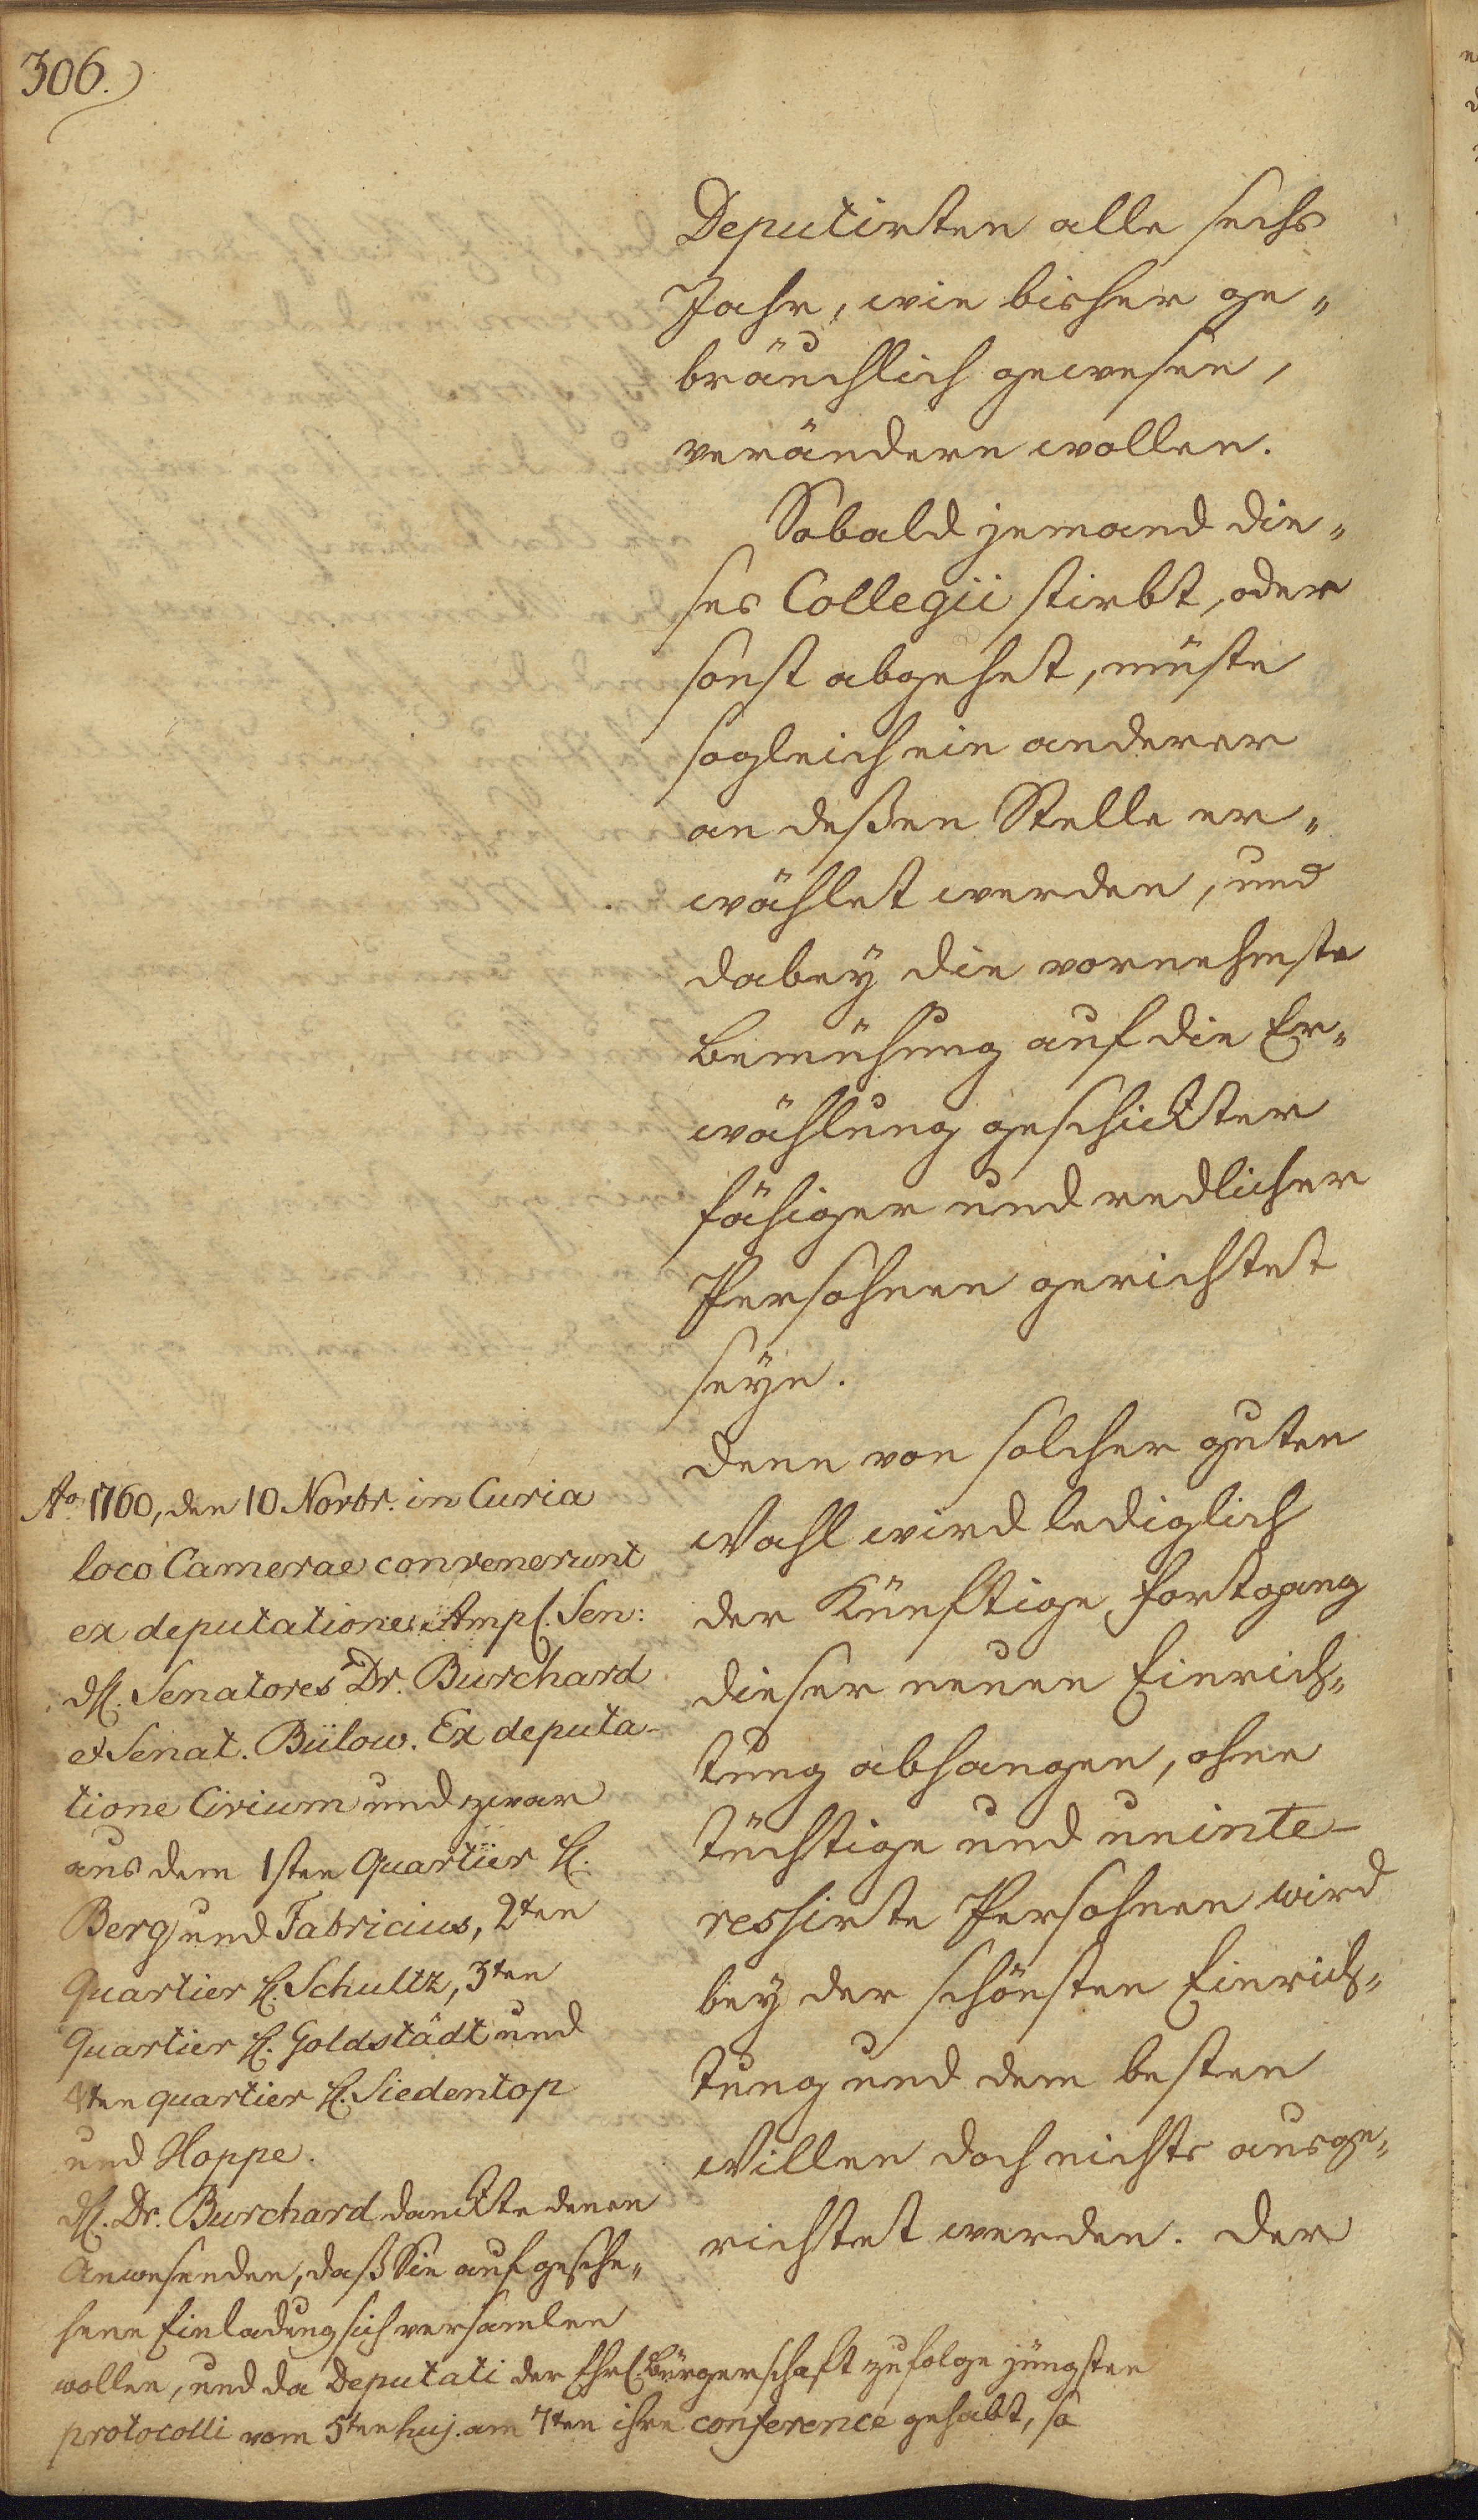 306.
Deputirten alle sechs
Jahr, wie bisher ge„
bräuchlich gewesen,
verändern wollen.
Sobald jemand die„
ses Collegii stirbt, oder
sonst abgehet, müste
sogleich ein anderer
an deßen Stelle er„
wählet werden, und
dabey die vornehmste
Bemühung auf die Er„
wählung geschickter
fähiger und redlicher
Persohnen gerichtet
seyn.
Denn von solcher guten
Wahl wird lediglich
der Künftige Fortgang
dieser neuen Einrich„
tung abhangen, ohne
tüchtige und uninte-
ressirte Persohnen wird
bey der schönsten Einrich„
tung und dem besten
Willen doch nichts ausge„
richtet werden. Der
Ao 1760, den 10 Novbr. in Curia
loco Camerae convenerunt
ex deputatione Ampl. Sen:
dH. Senatores Dr. Burchard
et Senat. Bülow. Ex deputa-
tione Civium und zwar
aus dem 1sten Quartier H.
Berg und Fabricius, 2ten
Quartier H. Schultz, 3ten
Quartier H. Goldstädt und
4ten quartier H. Siedentop
und Hoppe.
dH. Dr. Burchard danckte denen
Anwesenden, daß Sie auf gesche„
hene Einladung sich versamlen
wollen, und da Deputati der Ehrl. Bürgerschaft zufolge jüngsten
protocolli vom 5ten huj. am 7ten ihre conference gehabt, so